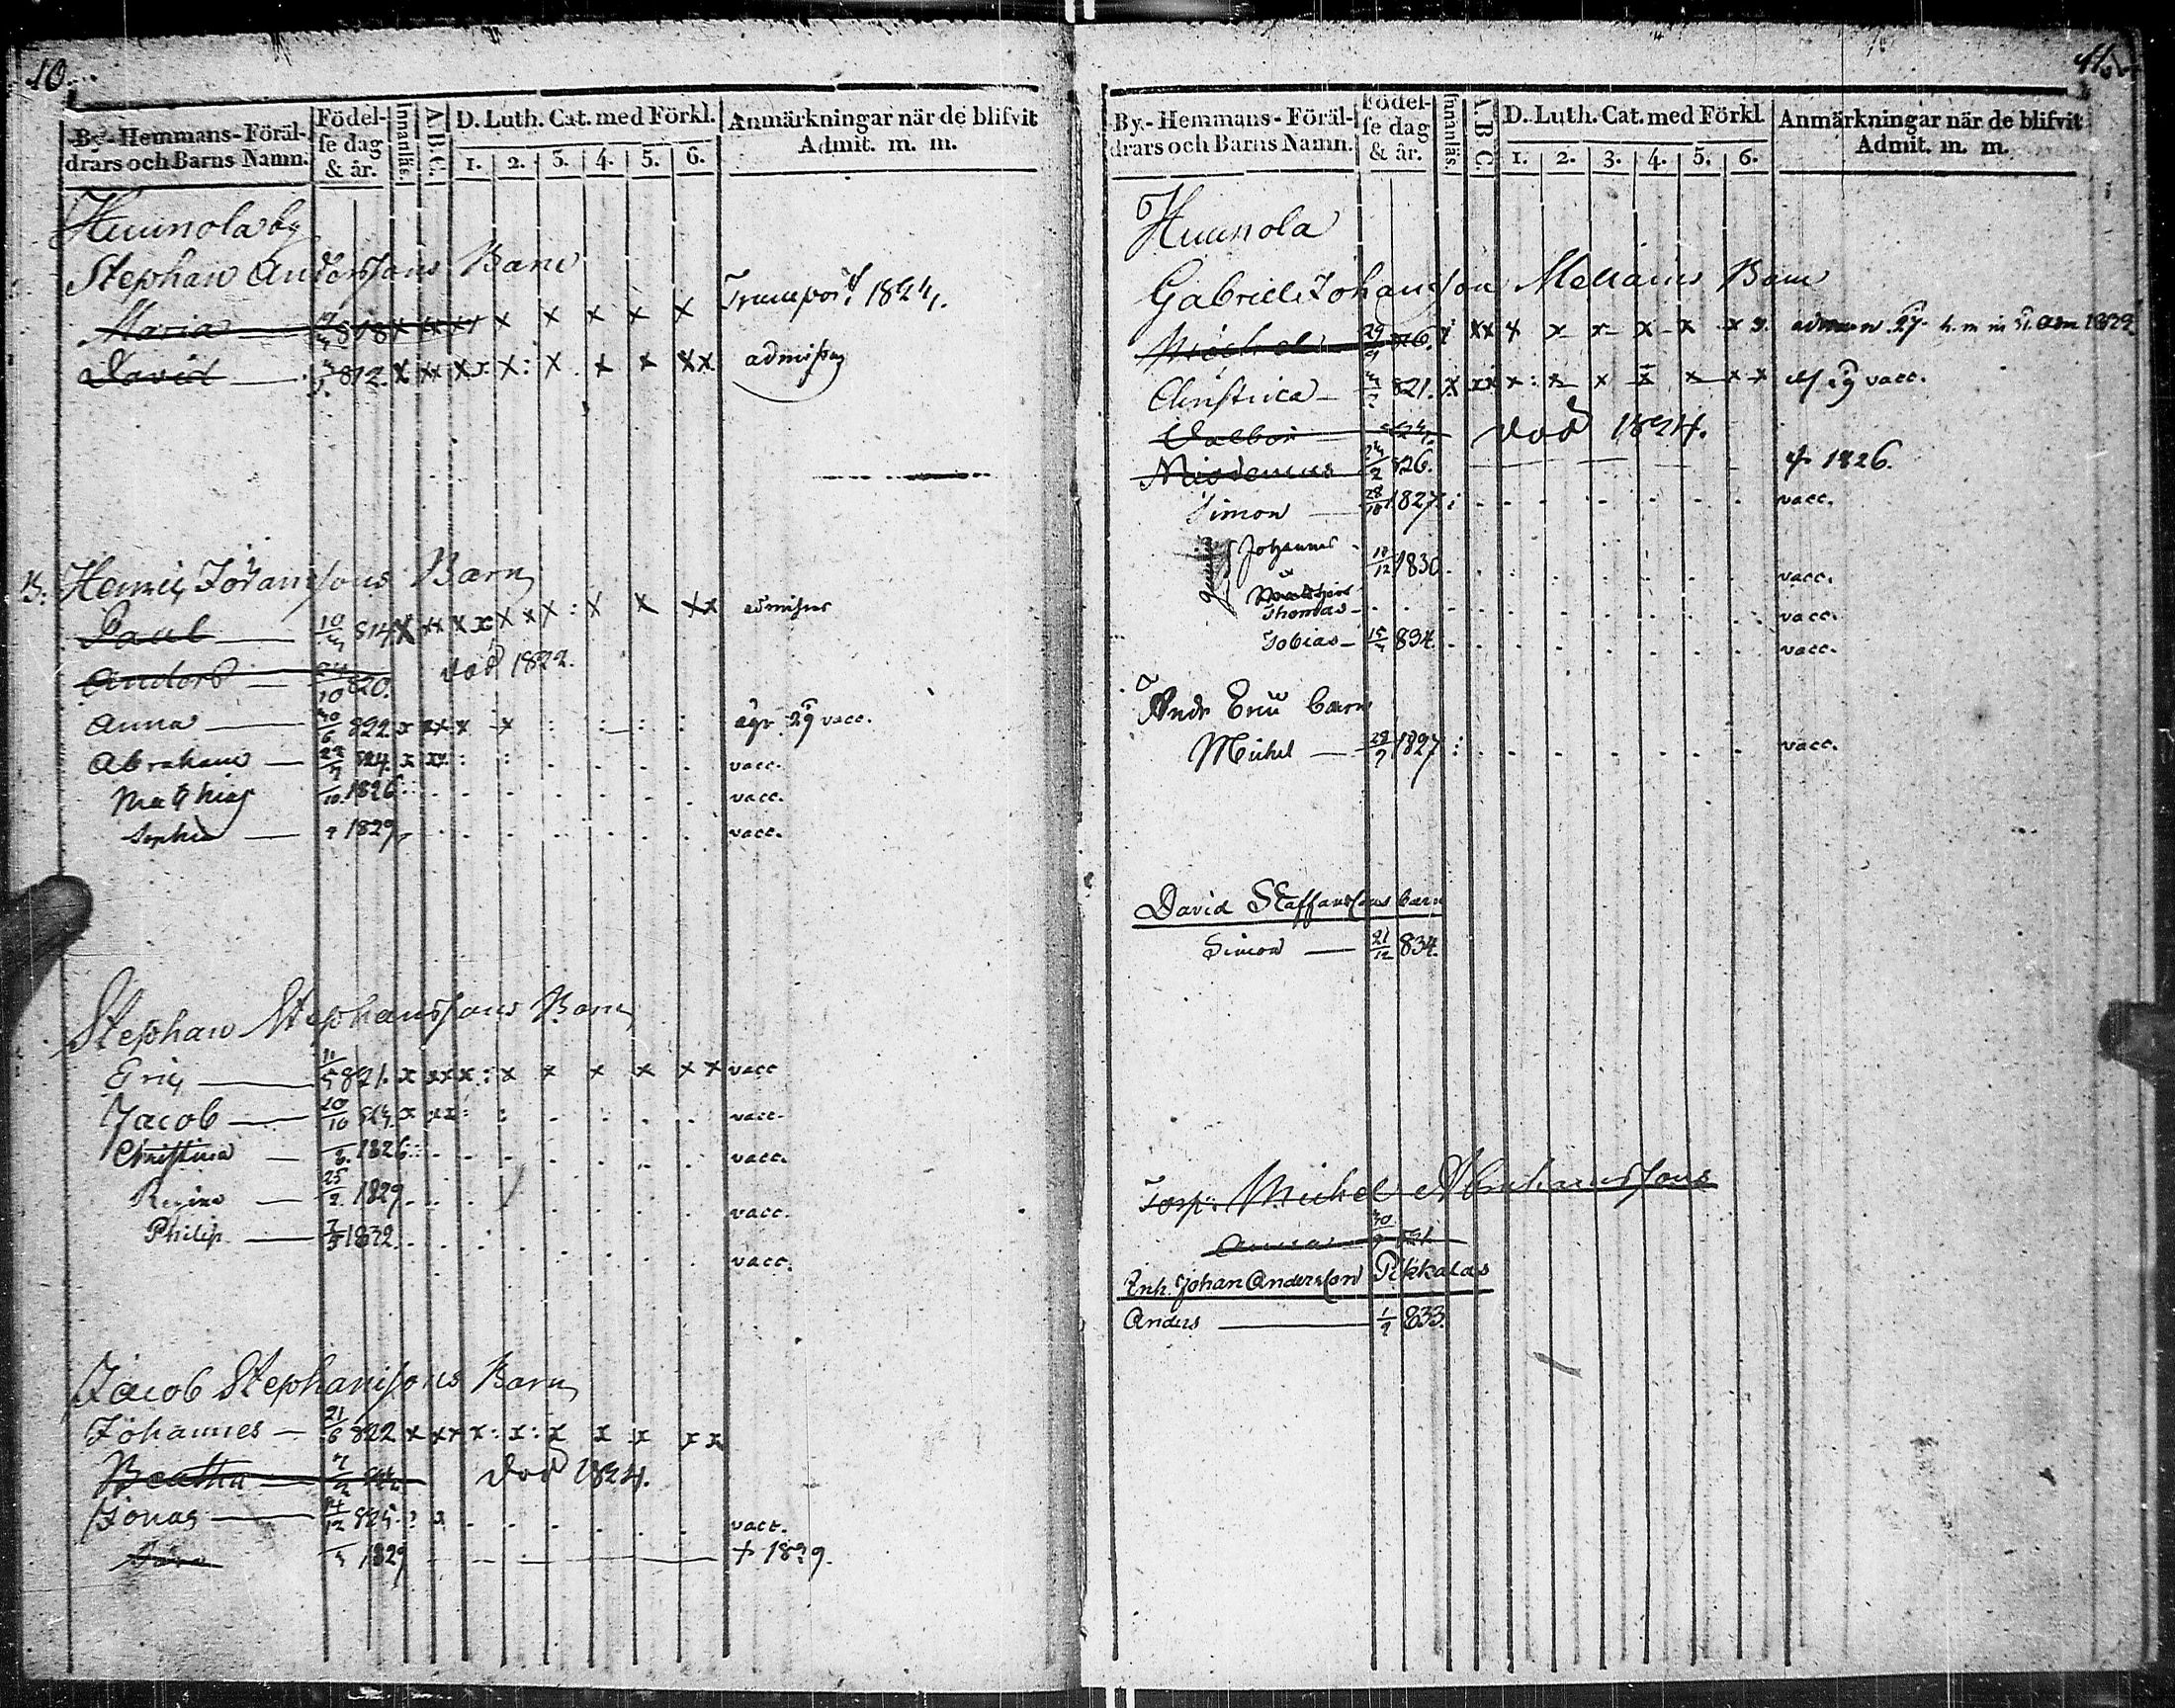 10.
By- Hemmans- Föräl-drars och Barns Namn. Födel-se dag & år. Innanläs. A B C. D. Luth. Cat. med Förkl. 1. 2. 3. 4. 5. 6. Anmärkningar när de blifvit Admit. m. m.
Huunola by
Stephan Anderssons Barn
Maria 818 x xx x x x x x x Transport 1824.
David 812. x xx xx x: x. x x xx admissus
B. Henric Joransons Barn
Paul 10 814 x xx x x x x x : x x xx admissus
Anders 10 820. död 1822.
Anna 30/6 822 x xx x x : : : : vacc.
Abraham 824. x xx : : . . . . vacc.
Matthias /10. 1826 : . . . . . . . vacc.
Sophia 1829 . . . . . . . vacc.
Stephan Stephanssons Barn
Eric 11/5 821. x xx x : x x x x x x vacc
Jacob 20/10 824. x xx : : . . . . vacc.
Christina 1826 : . . . . . . . vacc.
Regina 25/2. 1829 . . . . . . . vacc.
Philip 1832. . . . . . . . vacc.
Jacob Stephanssons Barn
Johannes 21/6 822 x xx x : x : x x x x x
Beatha död 1824.
Jonas 14/12 825 : x . . . . . . vacc.
Sara 1829 + 1829.
11.
By- Hemmans- Föräl-drars och Barns Namn. Födel-se dag & år. Innanläs. A B C. D. Luth. Cat. med Förkl. 1. 2. 3. 4. 5. 6. Anmärkningar när de blifvit Admit. m. m.
Huunola
Gabriel Johansson Barn
Michel 29/9 816. x xx x x x x x x x.
Christina 821. x xx x : x x x x x x vacc.
Valbor 824. död 1824.
Nicodemus 24/2 826. + 1826.
Simon 28/10 1827 : . . . . . . . vacc.
Johannes 12 1830. . . . . . . . vacc.
Thomas . . . . . . . . vacc.
Tobias 834. . . . . . . . vacc.
Andr Eric barn
Michel 28/9 1827 : . . . . . . . vacc.
David Staffanssons barn
Simon 21/12 834.
Torp: Michel Abrahamssons
Anna 30
Inh. Johan Andersson Pikkalas
Anders 1/9 833.